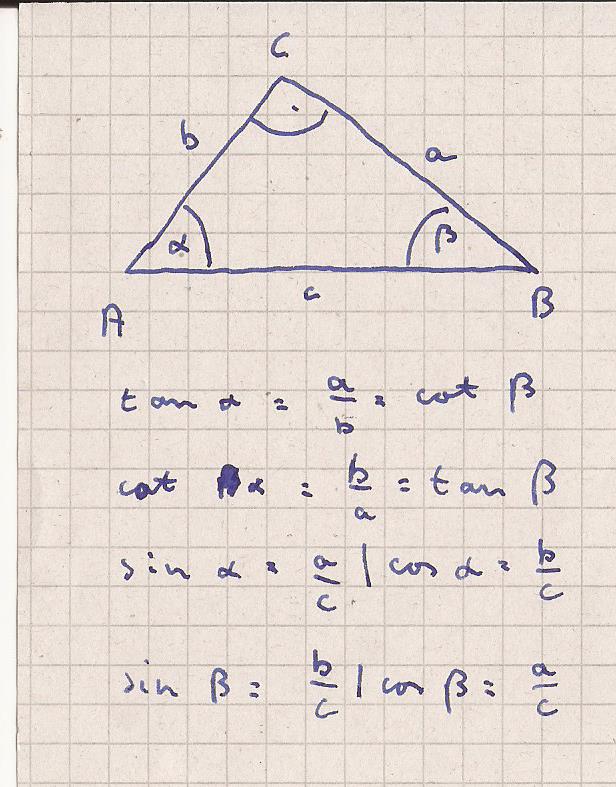 C
b a
α β
A c B
tan α = a/b = cot β
cot α = b/a = tan β
sin α = a/c | cos α = b/c
sin β = b/c | cos β = a/c